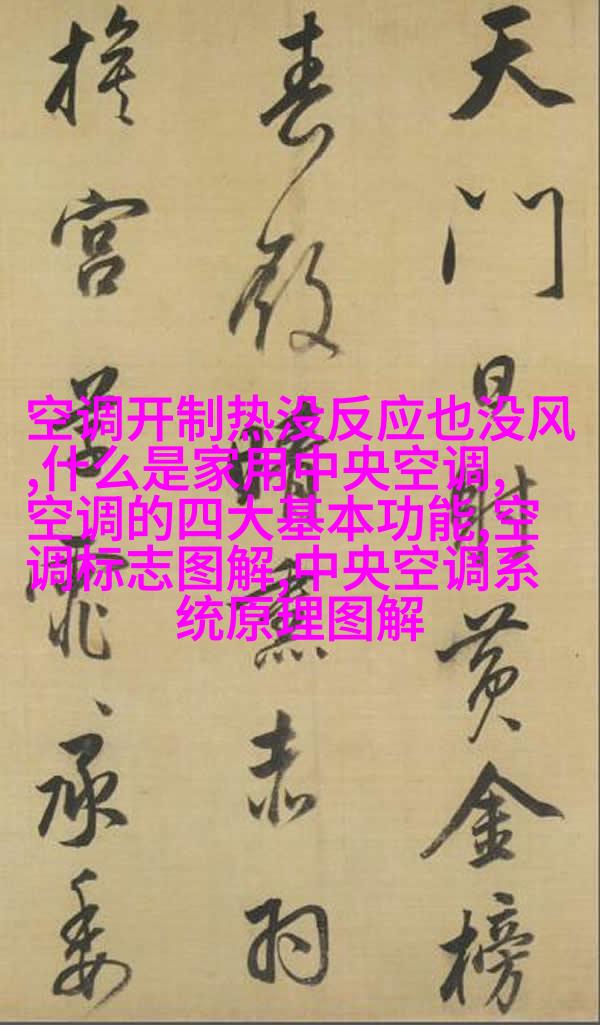 空调开制热没反应也没风
,什么是家用中央空调,
空调的四大基本功能,空
调标志图解,中央空调系
统原理图解
天門日射黄金榜
春殿晴熏赤羽
旗宮草霏〻承委